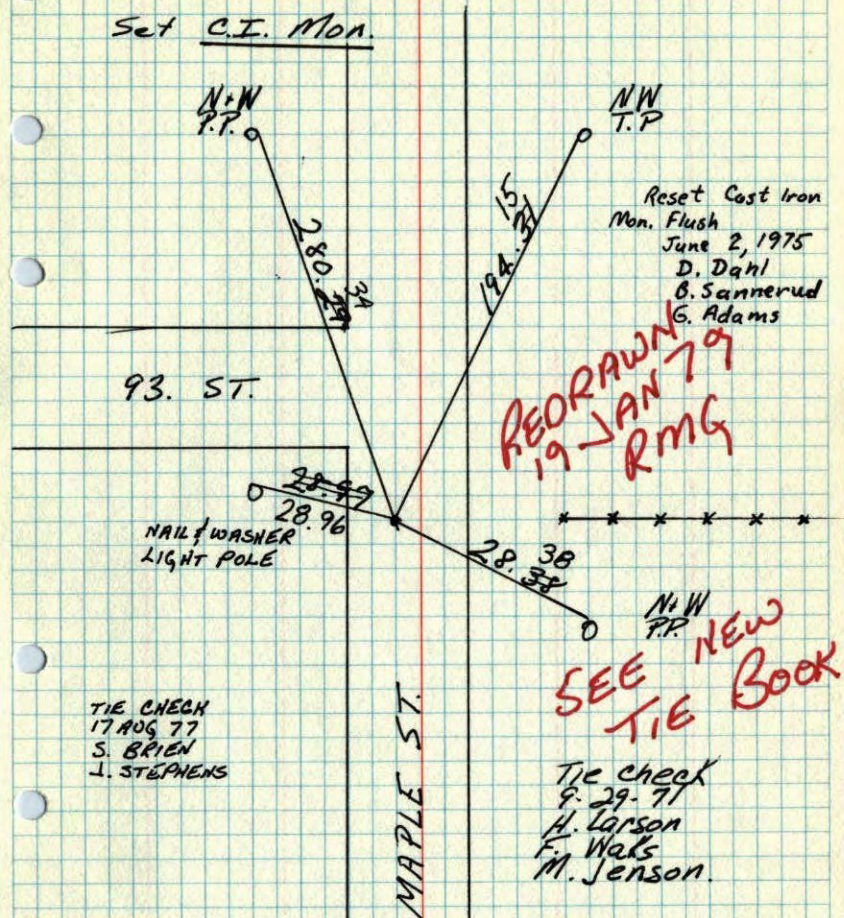 Set C.I. Mon.
N+W
P.P.
NW
T.P
15
194.31
280.29
34
Reset Cast Iron
Mon. Flush
June 2, 1975
D. Dahl
B. Sannerud
G. Adams
REDRAWN
19 JAN 79
RMG
93. ST.
28.97
28.96
NAIL & WASHER
LIGHT POLE
38
28.38
N+W
P.P.
SEE NEW
TIE BOOK
TIE CHECK
17 AUG 77
S. BRIEN
J. STEPHENS
MAPLE ST.
Tie check
9-29-71
H. Larson
F. Waks
M. Jenson.